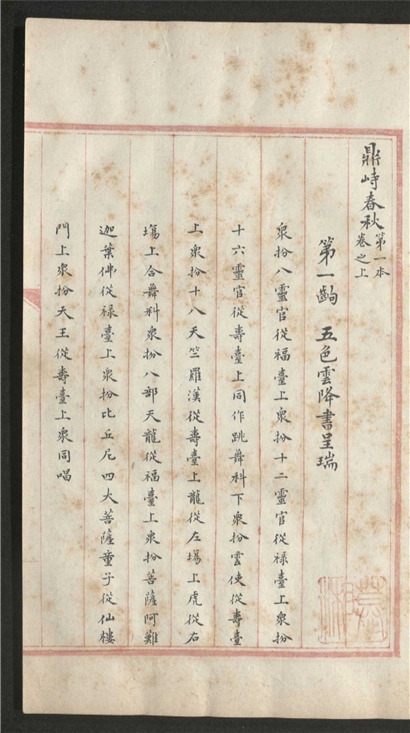 鼎峙春秋 第一本 卷之上
第一齣 五色雲降書呈瑞
衆扮八靈官從福臺上衆扮十二靈官從禄臺上衆扮
十六靈官從壽臺上同作跳舞科下衆扮雲使從壽臺
上衆扮十八天竺羅漢從壽臺上龍從左塲上虎從右
塲上合舞科衆扮八部天龍從福臺上衆扮菩薩阿難
迦葉佛從禄臺上衆扮比丘尼四大菩薩童子從仙樓
門上衆扮天王從壽臺上衆同唱